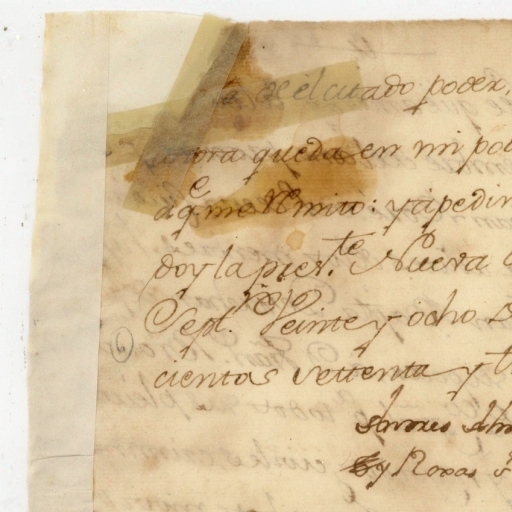 de el citado poder,
ora queda en mi pod
aq.e me Remito: y a pedim
doy la pres.te Nueva
Sept.re Veinte y ocho d
cientos settenta y t
y Roxas